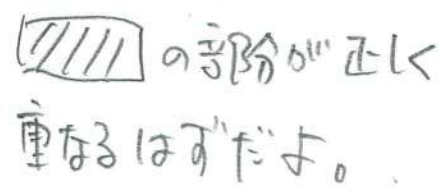 の部分が正しく
重なるはずだよ。